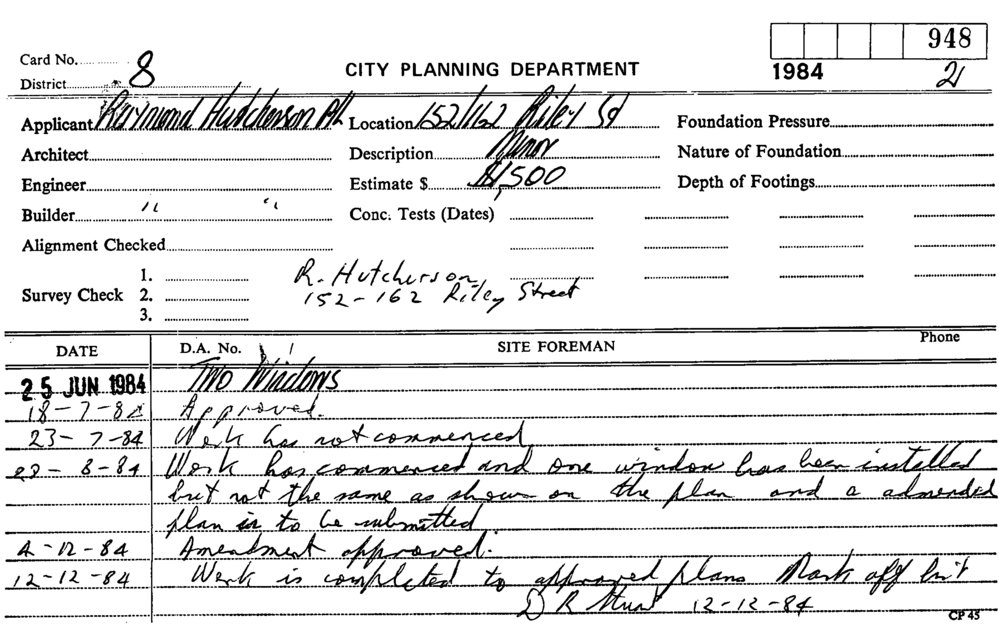 948
Card No. 8
CITY PLANNING DEPARTMENT
1984 2
District
Applicant Raymond Hutcherson Location 152/162 Riley St Foundation Pressure
Architect Description Minor Nature of Foundation
Engineer Estimate $ $1,500 Depth of Footings
Builder " " Conc. Tests (Dates)
Alignment Checked
R. Hutcherson
Survey Check 1. 2. 3.
152-162 Riley Street
DATE D.A. No. SITE FOREMAN Phone
25 JUN 1984 Two Windows
18-7-84 Approved.
23-7-84 Work has not commenced
28-8-84 Work has commenced and one window has been installed
but not the same as shown on the plan and a admended
plan is to be submitted
4-12-84 Amendment approved.
12-12-84 Work is completed to approved plans Mark off
D R 12-12-84
CP 45